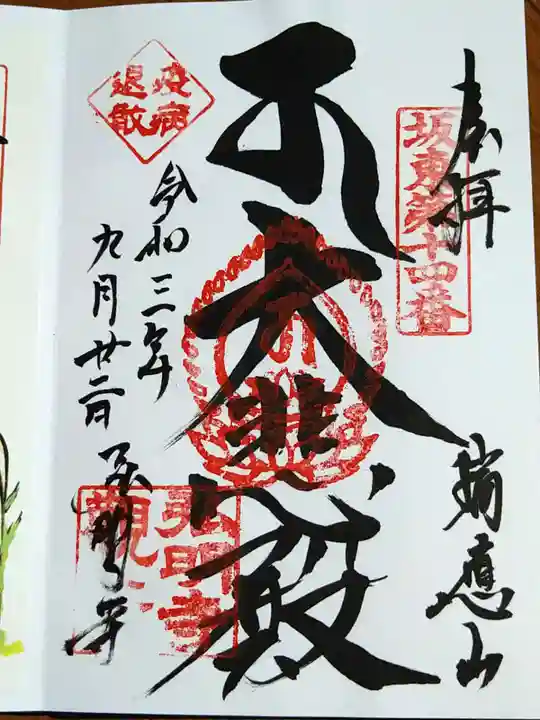 奉拝
坂東第十四番
瑞應山
大悲殿
疫病
退散
令和三年
九月廿二日
弘明寺
弘明寺
観